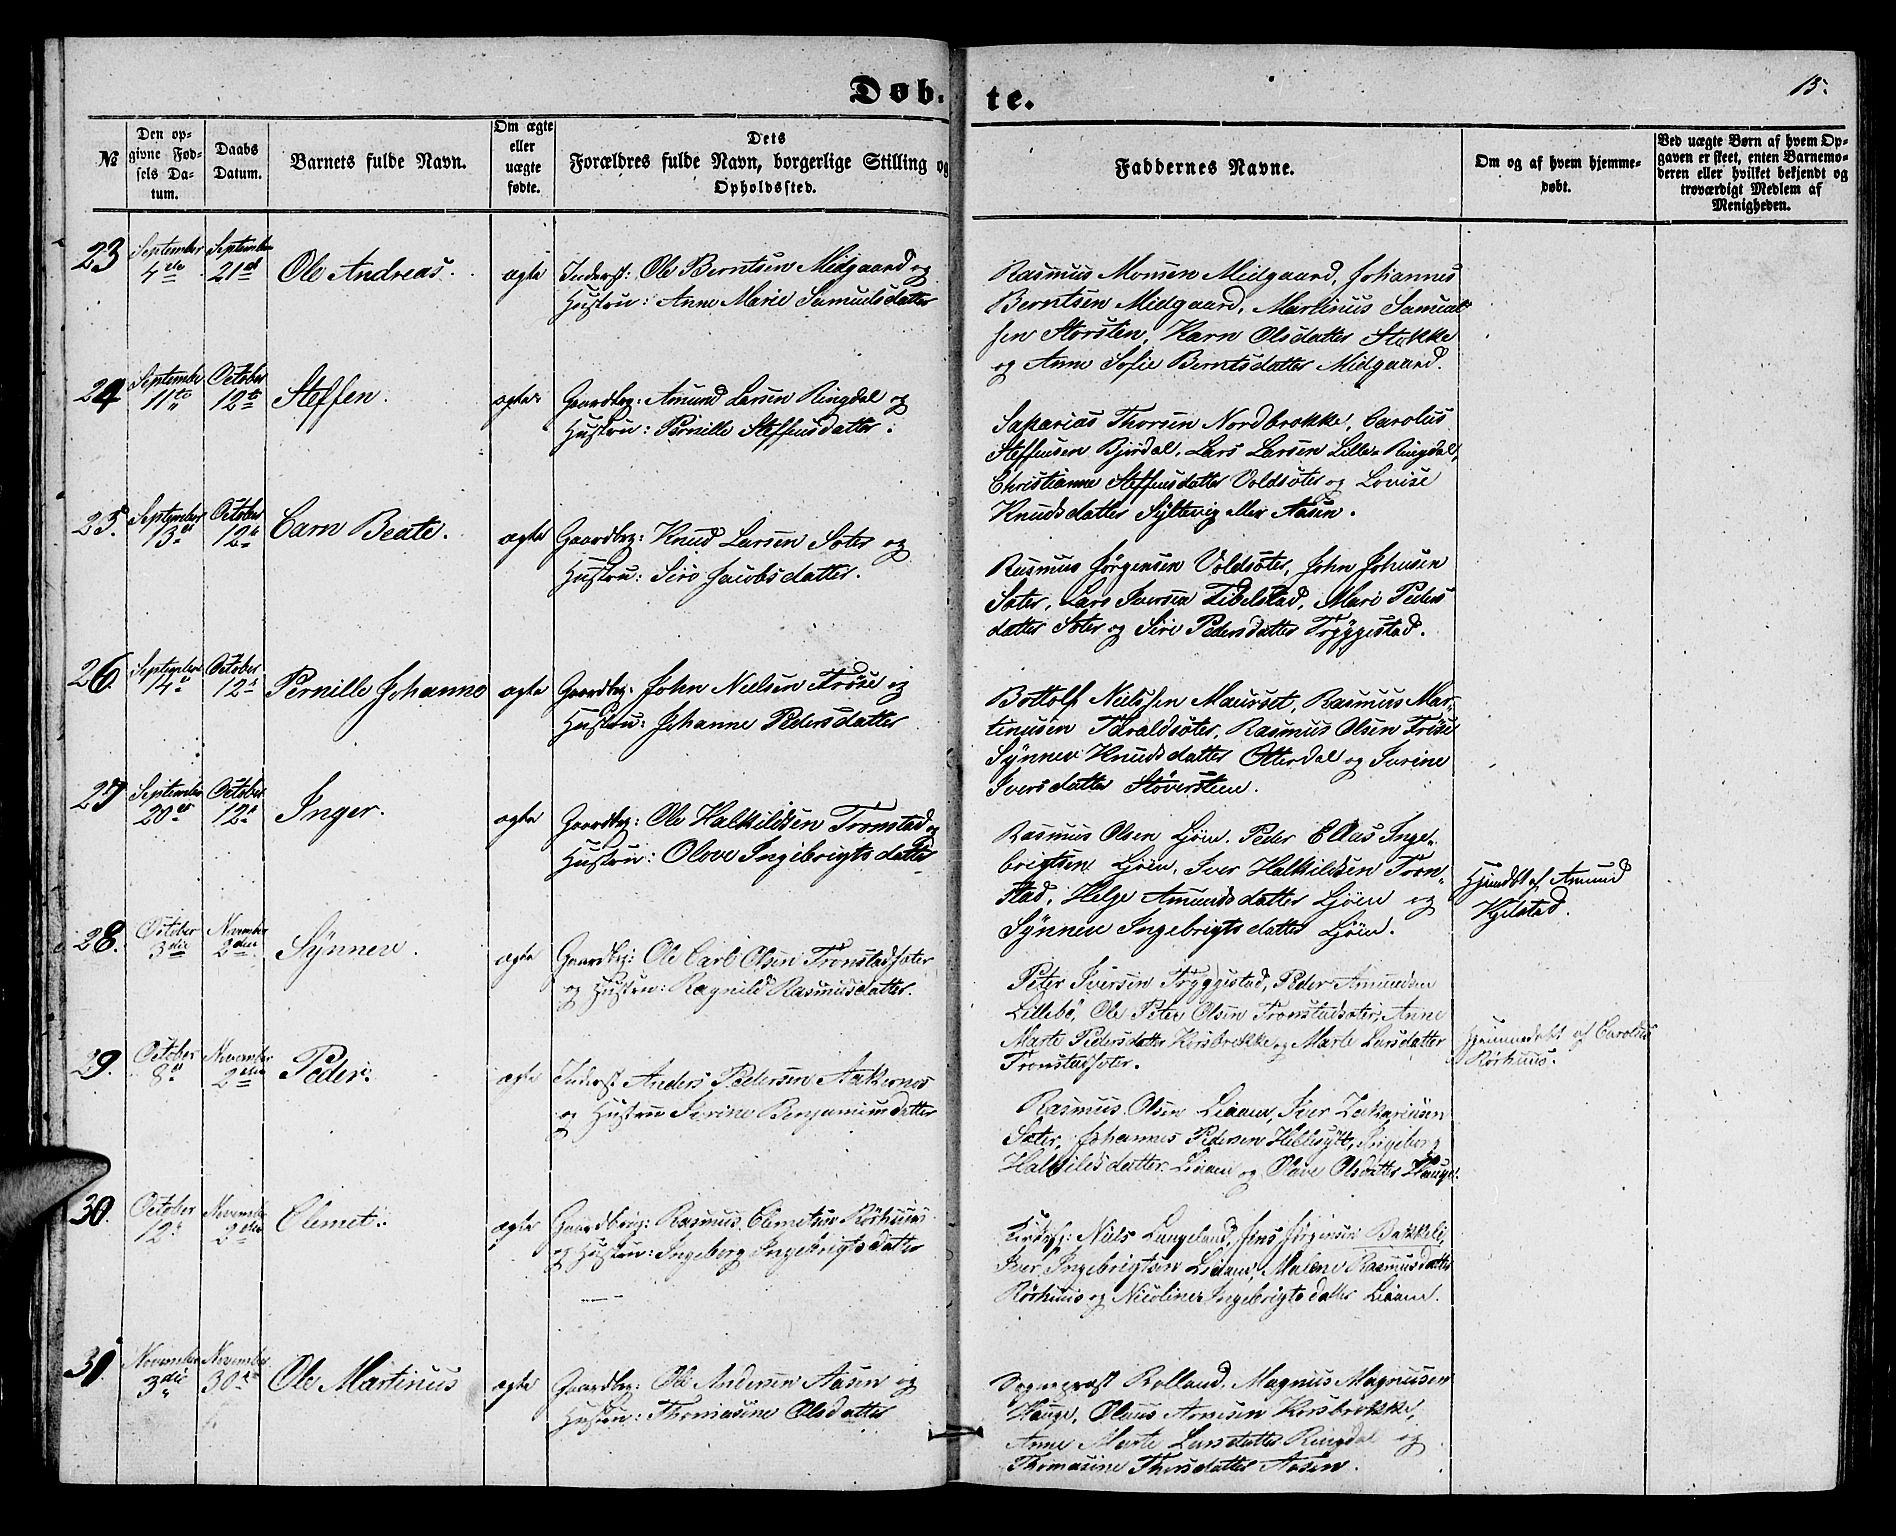 Døb-
te.
15.
№
Den op-
givne Fød-
sels Da-
tum.
Daabs
Datum.
Barnets fulde Navn.
Om ægte
eller
uægte
fødte.
Dets
Forældres fulde Navn, borgerlige Stilling og
Opholdssted.
Faddernes Navne.
Om og af hvem hjemme-
døbt.
Ved uægte Børn af hvem Op-
gaven er skeet, enten Barnemo-
deren eller hvilket bekjendt og
troværdigt Medlem af
Menigheden.
23 September 4de September 21de Ole Andreas. ægte Inderst: Ole Berntsen Midgaard og
Hustru: Anne Marie Samuelsdatter
Rasmus Monsen Midgaard, Johannes
Berntsen Midgaard, Martinus Samuel-
sen Storsten, Karn Olsdatter Stokke
og Anne Sofie Berntsdatter Midgaard.
24 September 11te October 12te Steffen. ægte Gaardbrg: Amund Larsen Ringdal og
Hustru: Pernille Steffensdatter.
Sakarias Thorsen Nordbrekke, Carolus
Steffensen Bjørdal, Lars Larsen Lille-Ringdal,
Christianne Steffensdatter Voldsæter og Lovise
Knudsdatter Syltevig eller Aasen.
25. September 13de October 12te Carn Beate. ægte Gaardbrg: Knud Larsen Sæter og
Hustru: Siro Jacobsdatter.
Rasmus Jørgensen Voldsæter, John Johnsen
Sæter, Lars Iversen Fibelstad, Mari Peders
datter Sæter og Siri Pedersdatter Tryggestad.
26. September 14de October 12te Pernille Johanne ægte Gaardbrg: John Nielsen Frøse og
Hustru: Johanne Pedersdatter
Bottolf Nielssen Maurset, Rasmus Mar-
tinusen Taraldsæter, Rasmus Olsen Frøse
Synnev Knudsdatter Otterdal og Iverine
Iversdatter Støversteen.
27 September 20de October 12te Inger. ægte Gaardbrg: Ole Halkildsen Tronstad og
Hustru: Olove Ingebrigtsdatter
Rasmus Olsen Ljøen, Peder Elias Inge-
brigtsen Ljøen, Iver Halkildsen Tron-
stad, Helge Amundsdatter Ljøen og
Synnev Ingebrigtsdatter Ljøen.
Hjemdbt af Amund
Kjelstad.
28. October 3die November 2den Synnev. ægte Gaardbrg: Ole Carl Olsen Tronstadsæter
og Hustru: Ragnild Rasmusdatter.
Peter Iversen Tryggestad, Peder Amundsen
Lillebø, Ole Peter Olsen Tronstadsæter, Anne
Marte Pedersdatter Korsbrekke og Marte Larsdatter
Tronstadsæter.
Hjemmedøbt af Carolus
Rørhuus.
29. October 8de November 2den Peder. ægte Inderst Anders Pedersen Aakernes
og Hustru Iverine Benjaminsdatter
Rasmus Olsen Liaen, Iver Zakariasen
Sæter, Johannes Pedersen Hellesylt, Ingeborg
Halkildsdatter Liaen og Olave Olsdatter Hauge.
30. October 12te November 2den Clemet. ægte Gaardbrg: Rasmus Clemetsen Rørhuus
og Hustru: Ingeborg Ingebrigtsdatter
Kirkes: Niels Langeland, Jens Jørgensen Bakkeli,
Iver Ingebrigtsen Liaen, Malene Rasmusdatter
Rørhuus og Nicoline Ingebrigtsdatter Liaen.
31. November 3die November 30te Ole Martinus ægte Gaardbrg: Ole Andersen Aasen og
Hustru: Thomasine Olsdatter
Sogneprest Rolland, Magnus Magnusen
Hauge, Olaus Arnesen Korsbrekke,
Anne Marte Larsdatter Ringdal og
Thomasine Thorsdatter Aasen.